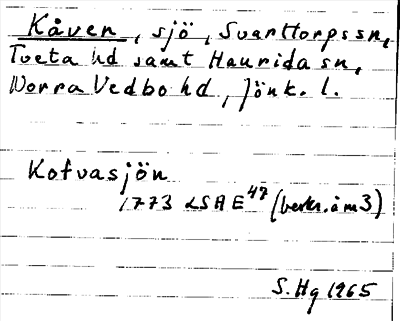 Kåven, sjö, Svarttorps sn,
Tveta hd samt Haurida sn,
Norra Vedbo hd, Jönk. l.
Kofvasjön
1773 LSA E47 (beskr. å m 3)
S. Hg 1965